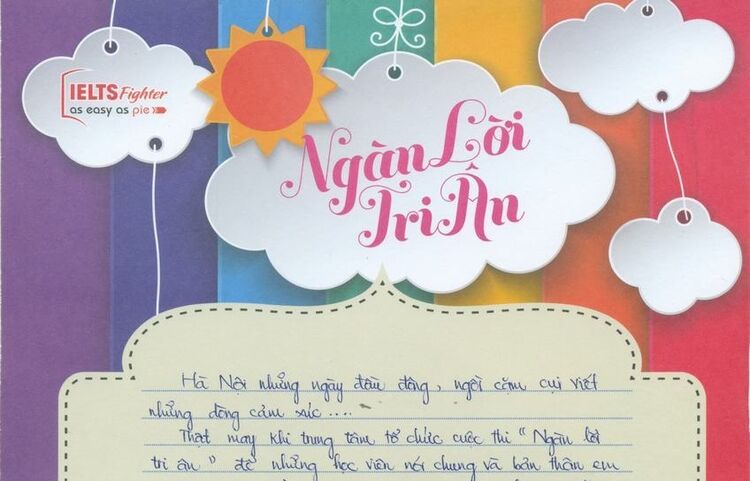 IELTS Fighter
as easy as pie
Ngàn Lời
Tri Ân
Hà Nội những ngày đầu đông, ngồi cặm cụi viết
những dòng cảm xúc....
Thật may khi trung tâm tổ chức cuộc thi "Ngàn lời
tri ân" để những học viên nói chung và bản thân em